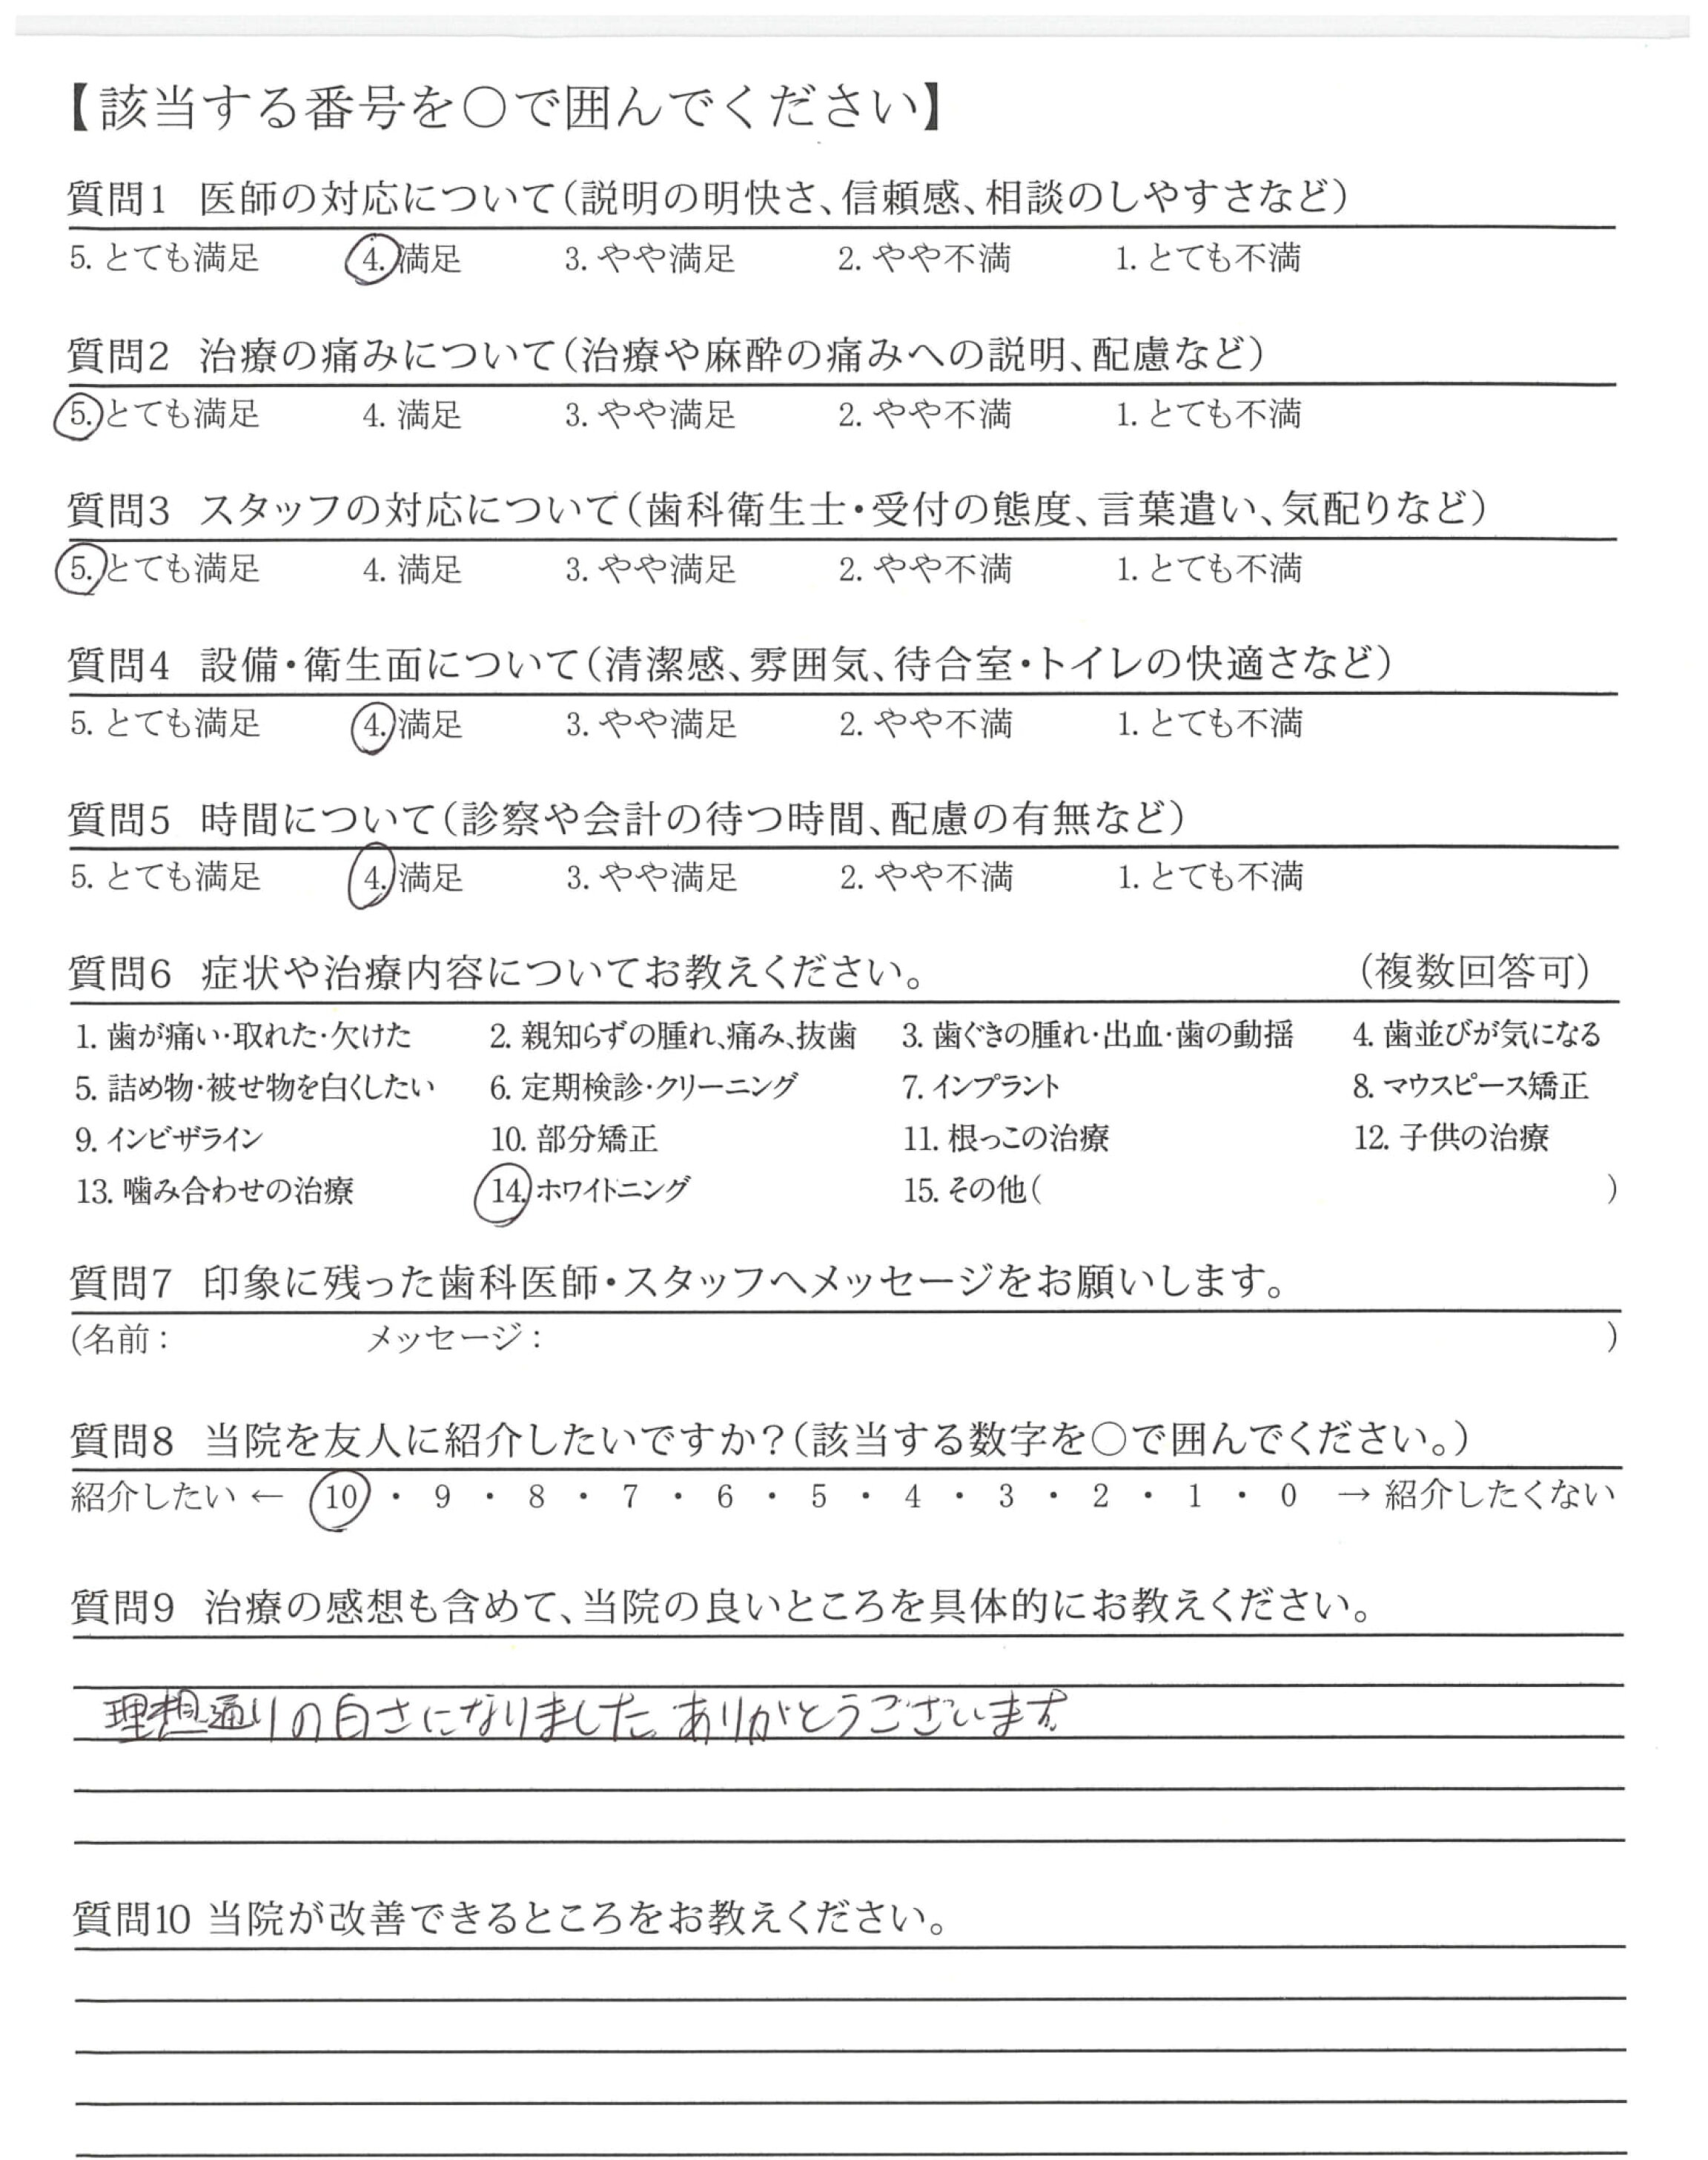 【該当する番号を○で囲んでください】
質問1 医師の対応について(説明の明快さ、信頼感、相談のしやすさなど)
5. とても満足 4. 満足 3. やや満足 2. やや不満 1. とても不満
質問2 治療の痛みについて(治療や麻酔の痛みへの説明、配慮など)
5. とても満足 4. 満足 3. やや満足 2. やや不満 1. とても不満
質問3 スタッフの対応について(歯科衛生士・受付の態度、言葉遣い、気配りなど)
5. とても満足 4. 満足 3. やや満足 2. やや不満 1. とても不満
質問4 設備・衛生面について(清潔感、雰囲気、待合室・トイレの快適さなど)
5. とても満足 4. 満足 3. やや満足 2. やや不満 1. とても不満
質問5 時間について(診察や会計の待つ時間、配慮の有無など)
5. とても満足 4. 満足 3. やや満足 2. やや不満 1. とても不満
質問6 症状や治療内容についてお教えください。 (複数回答可)
1. 歯が痛い・取れた・欠けた 2. 親知らずの腫れ、痛み、抜歯 3. 歯ぐきの腫れ・出血・歯の動揺 4. 歯並びが気になる
5. 詰め物・被せ物を白くしたい 6. 定期検診・クリーニング 7. インプラント 8. マウスピース矯正
9. インビザライン 10. 部分矯正 11. 根っこの治療 12. 子供の治療
13. 噛み合わせの治療 14. ホワイトニング 15. その他( )
質問7 印象に残った歯科医師・スタッフへメッセージをお願いします。
(名前: メッセージ: )
質問8 当院を友人に紹介したいですか?(該当する数字を○で囲んでください。)
紹介したい ← 10 ・ 9 ・ 8 ・ 7 ・ 6 ・ 5 ・ 4 ・ 3 ・ 2 ・ 1 ・ 0 → 紹介したくない
質問9 治療の感想も含めて、当院の良いところを具体的にお教えください。
理想通りの白さになりました。ありがとうございます。
質問10 当院が改善できるところをお教えください。